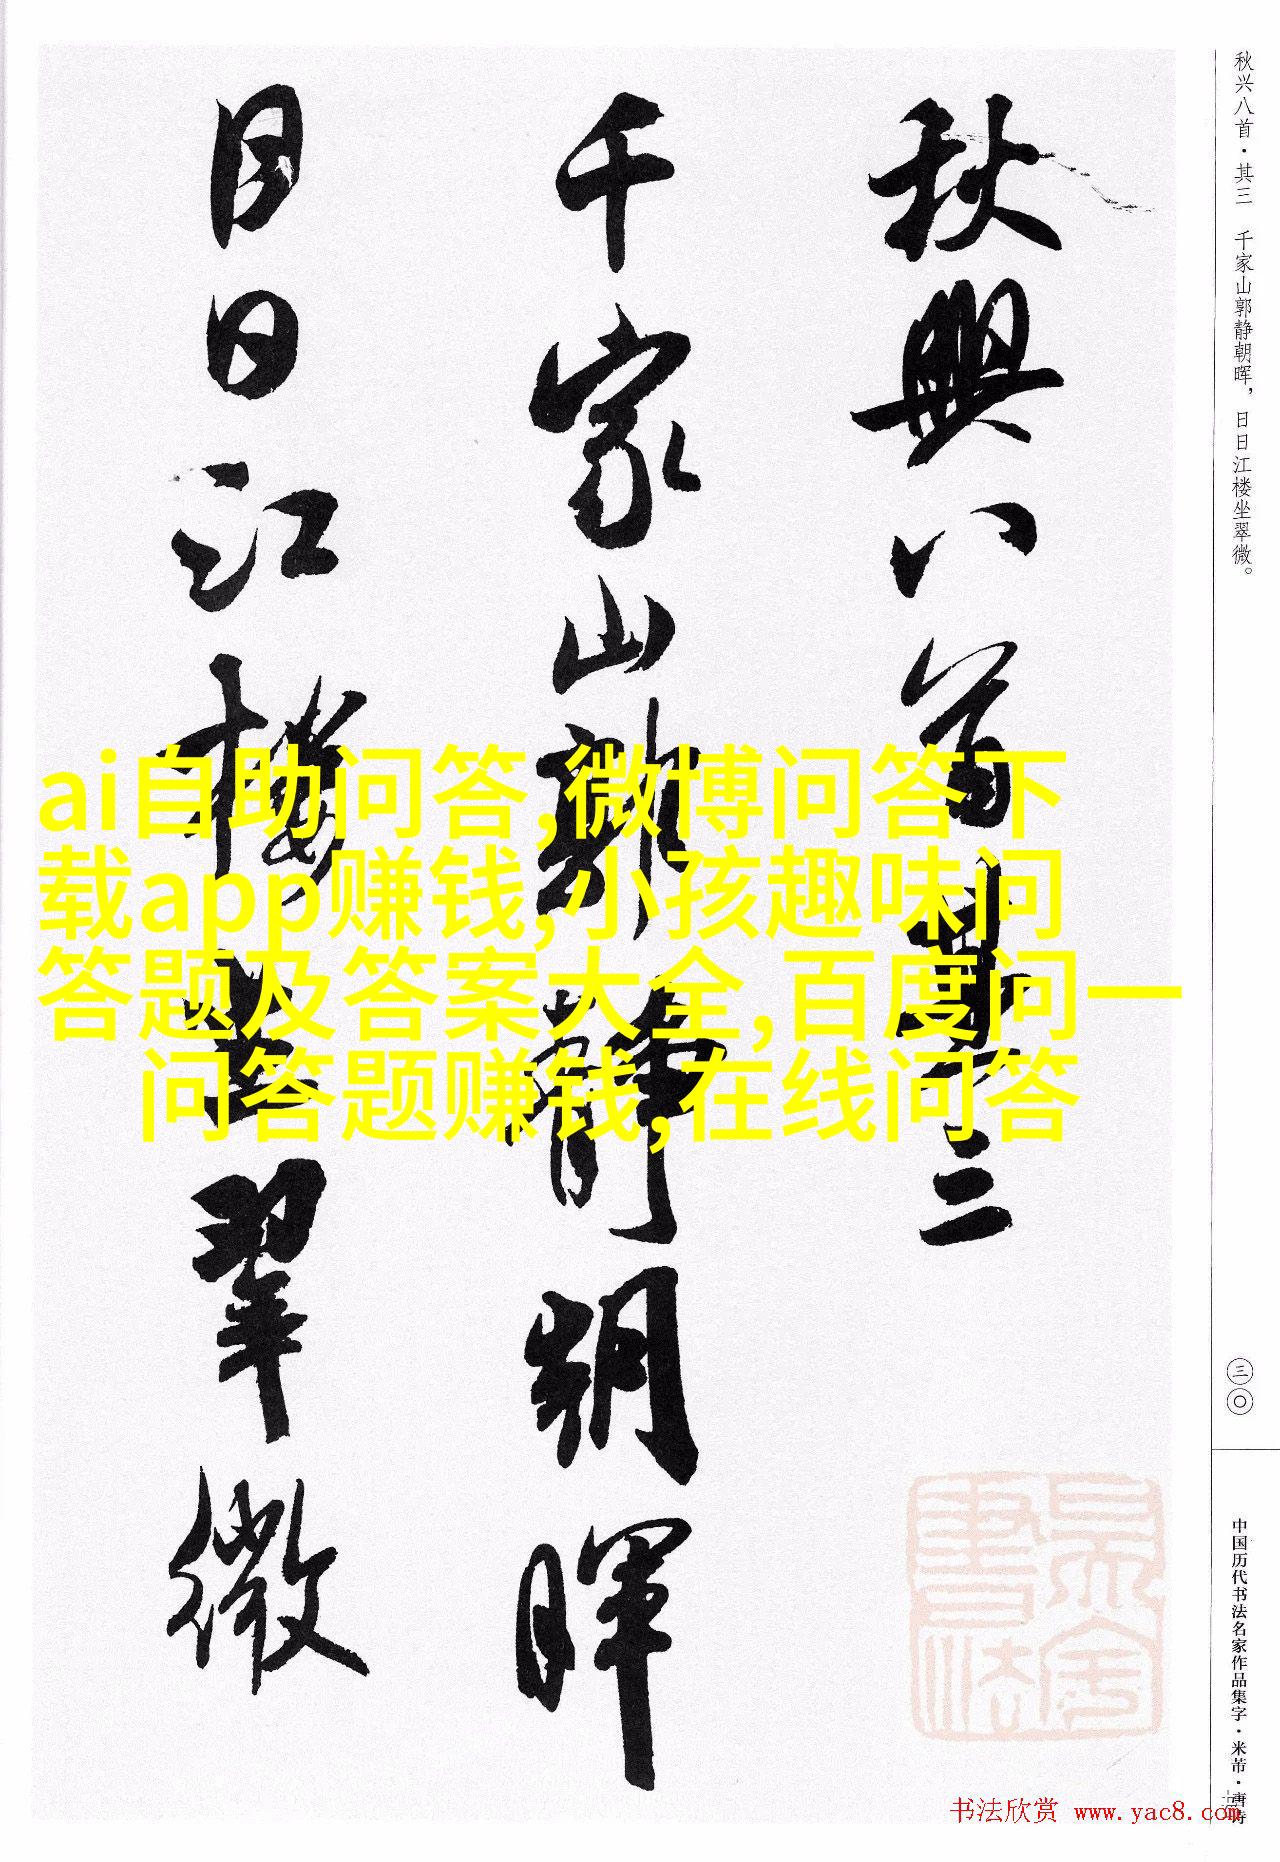 秋兴八首·其三　千家山郭静朝晖，日日江楼坐翠微。
秋興八首其三
千家山郭静朝暉
日日江樓坐翠微
ai自助问答,微博问答下
载app赚钱,小孩趣味问
答题及答案大全,百度问一
问答题赚钱,在线问答
三〇
中国历代书法名家作品集字·米芾·唐诗
书法欣赏 www.yac8.com